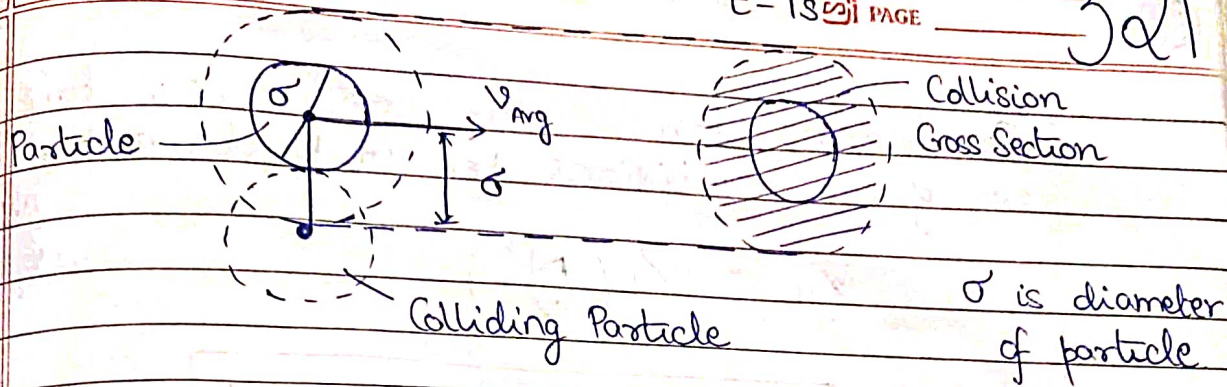 PAGE
321
σ
V Avg
Particle
σ
Collision
Cross Section
Colliding Particle
σ is diameter
of particle